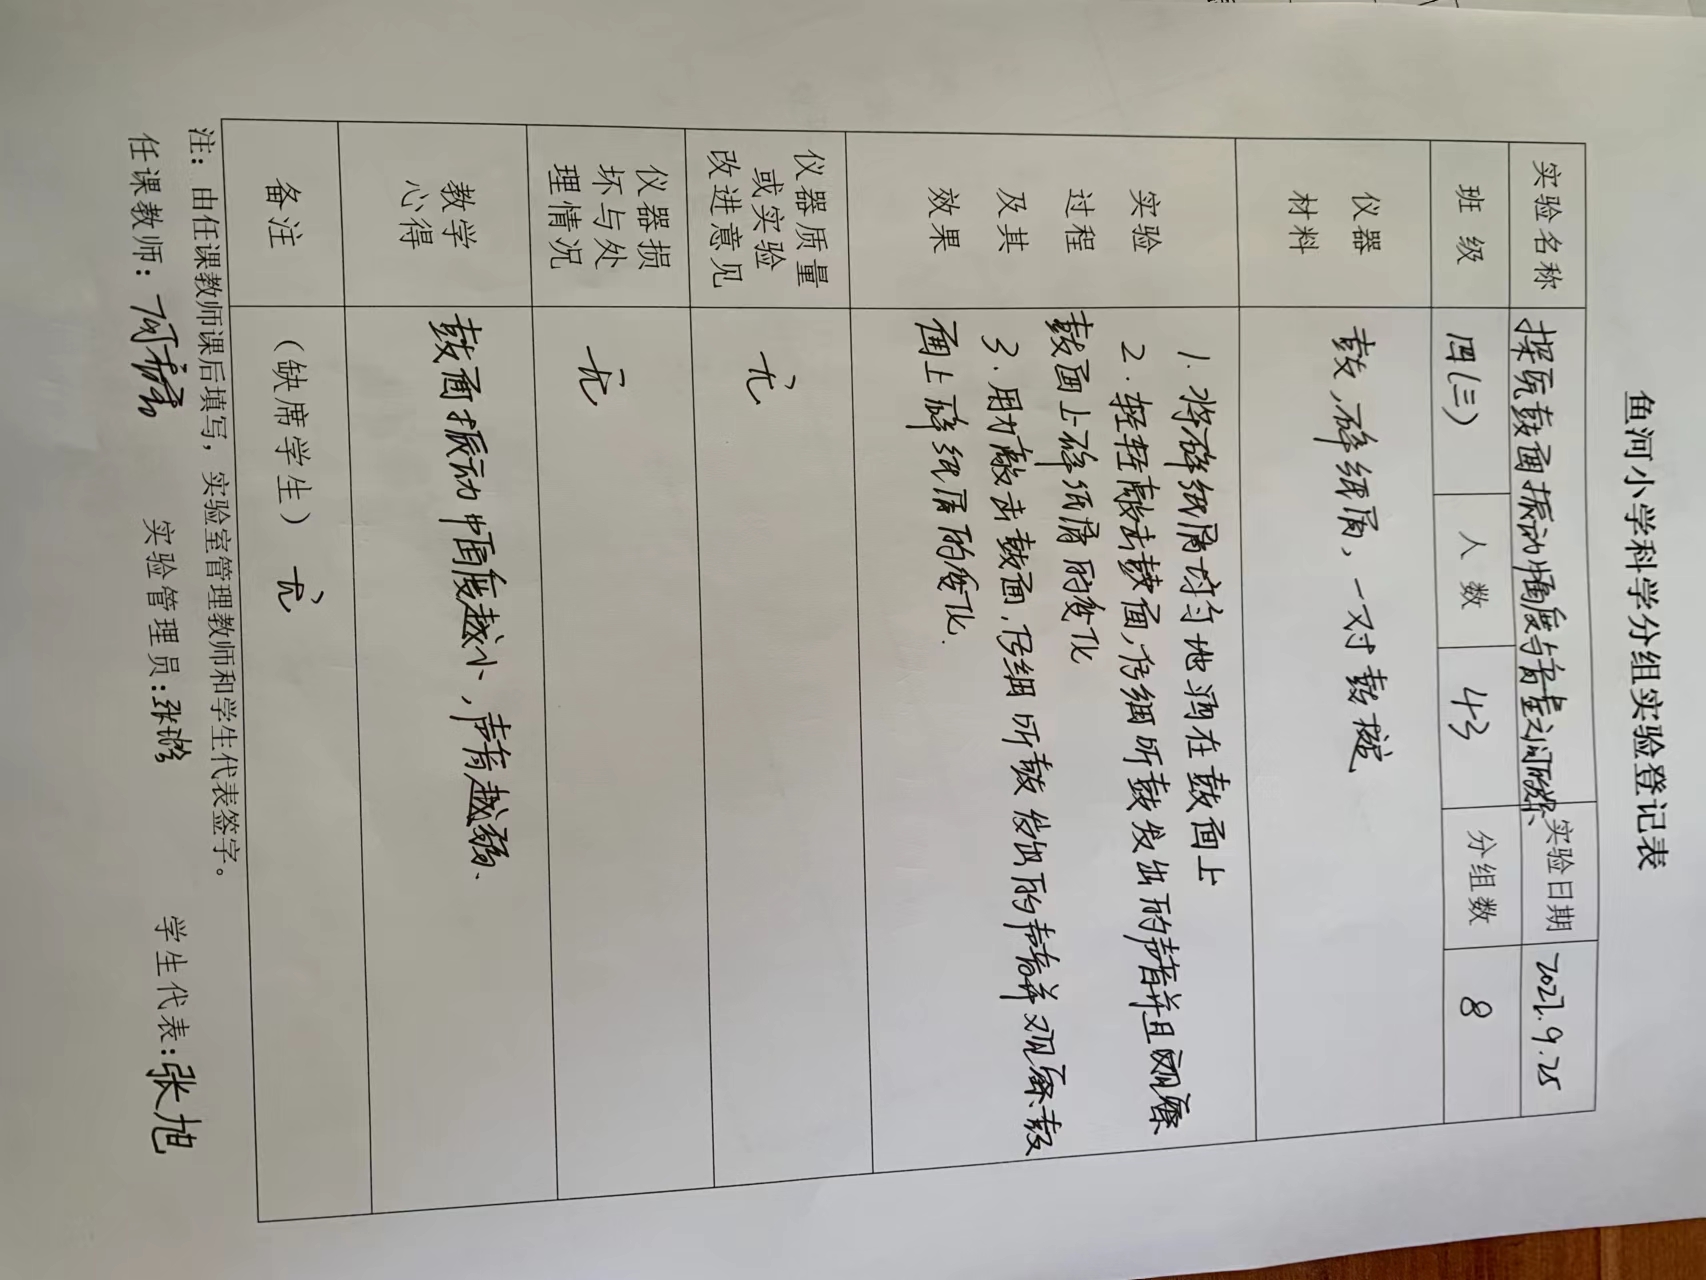 鱼河小学科学分组实验登记表
实验名称 探究鼓面振动幅度与音量之间的联系 实验日期 2021.9.25
班级 四(三) 人数 43 分组数 8
仪器
材料
鼓,碎纸屑,一对鼓槌
实验
过程
及其
效果
1.将碎纸屑均匀地洒在鼓面上
2.轻轻敲击鼓面,仔细听鼓发出的声音并且观察
鼓面上碎纸屑的变化
3.用力敲击鼓面,仔细听鼓发出的声音并观察鼓
面上碎纸屑的变化.
仪器质量
或实验
改进意见
无
仪器损
坏与处
理情况
无
教学
心得
鼓面振动幅度越小,声音越弱.
备注 (缺席学生) 无
注:由任课教师课后填写,实验室管理教师和学生代表签字。
任课教师: 实验管理员: 学生代表:张旭